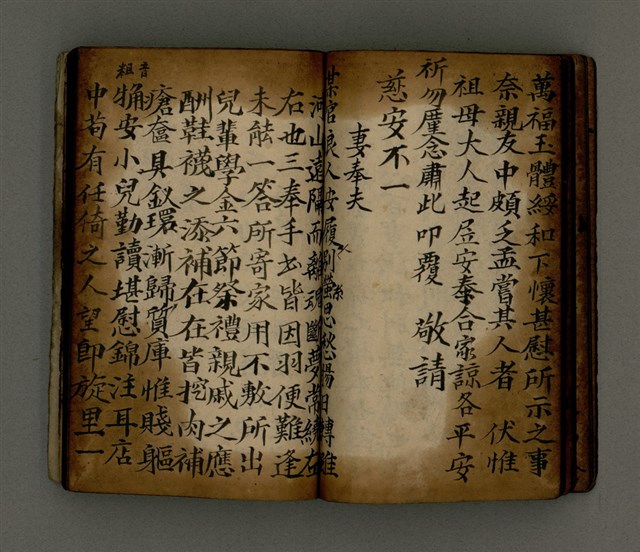 萬福玉體綏和下懷甚慰所示之事
奈親友中頗乏孟嘗其人者 伏惟
祖母大人起居安泰合家諒各平安
祈勿廑念肅此叩覆 敬請
慈安不一
妻奉夫
某官良人安履別
河山遠隔而
右也三奉手書皆因羽便難逢
未能一答所寄家用不敷所出
兒輩學金六節祭禮親戚之應
酬鞋襪之添補在在皆挖肉補
瘡奩具釵環漸歸質庫惟賤軀
觕安小兒勤讀堪慰錦注耳店
中苟有任倚之人望即旋里一
音粗